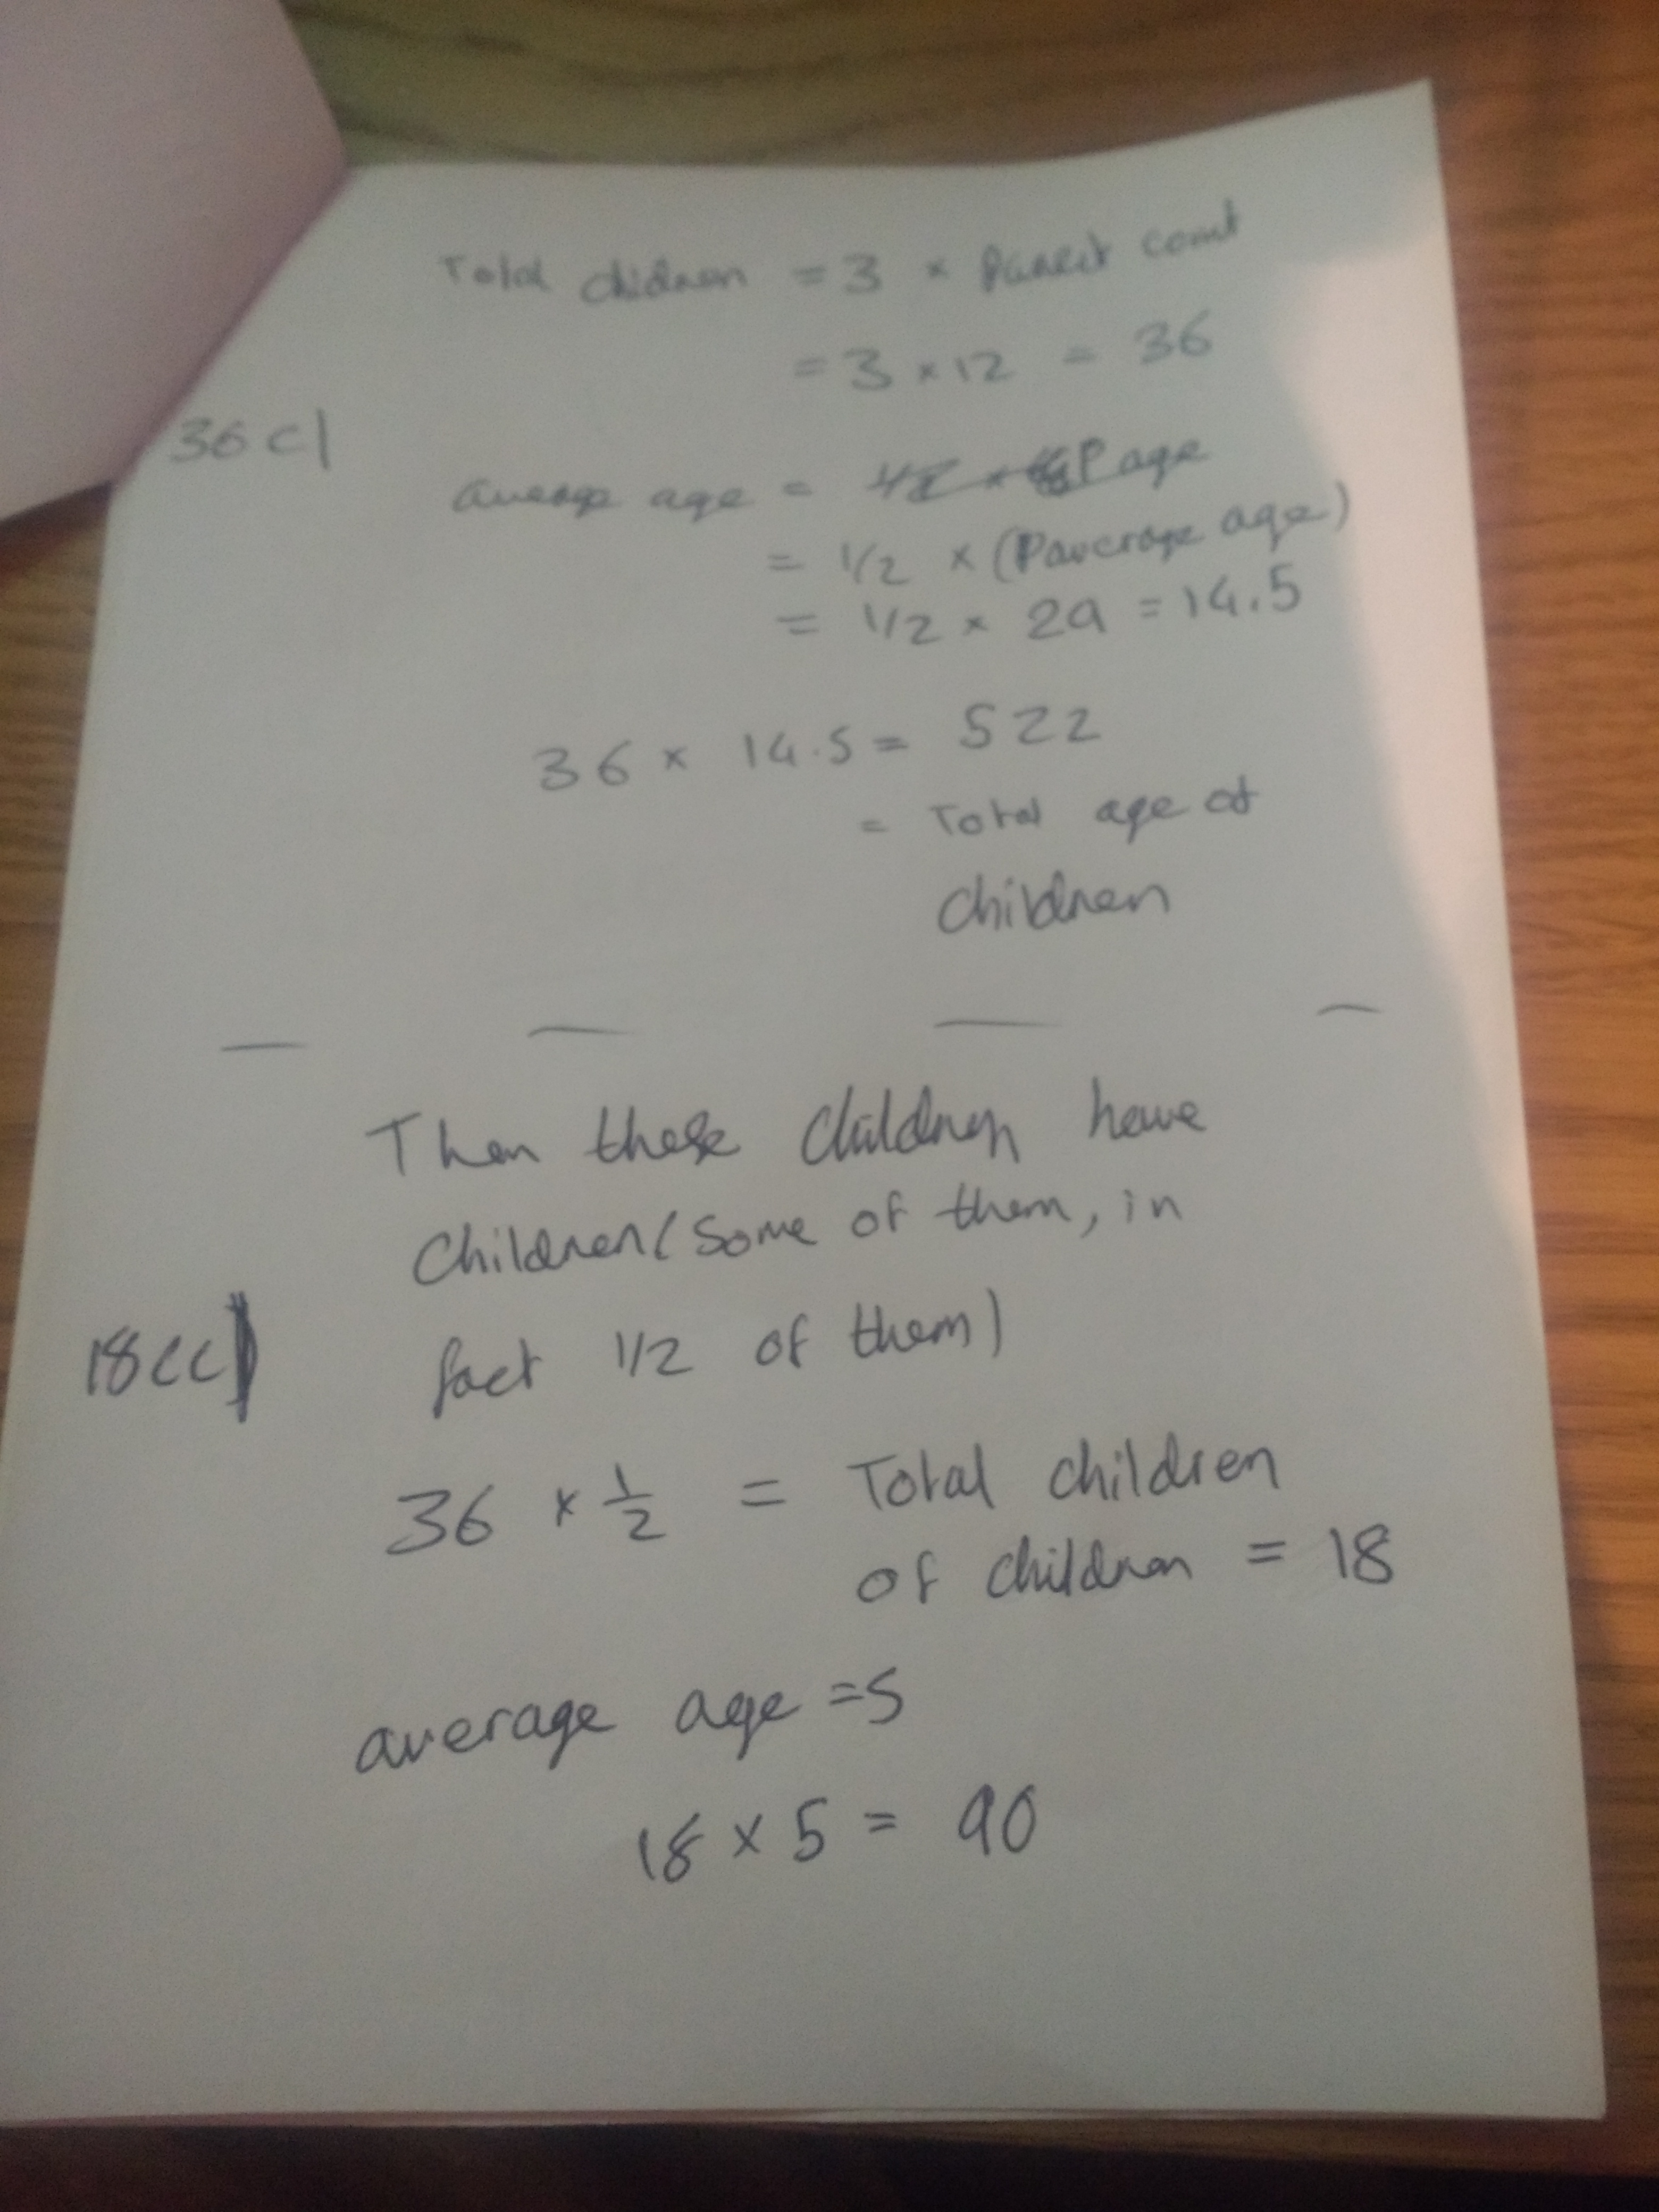 Total children = 3 × Parent count
= 3 × 12 = 36
36 c)
average age = P age
= 1/2 × (Paverage age)
= 1/2 × 29 = 14.5
36 × 14.5 = 522
= Total age of
children
Then these children have
children (some of them, in
18cc)
fact 1/2 of them)
36 × 1/2 = Total children
of children = 18
average age = 5
18 × 5 = 90